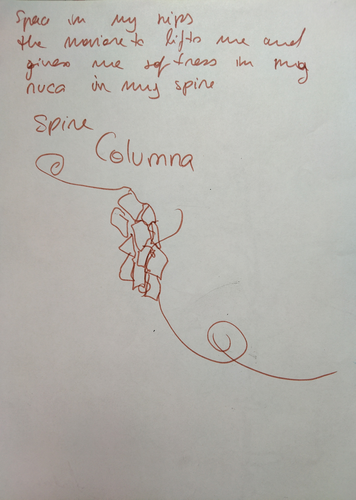 Space in my hips
the me to lifts me and
gives me softness in my
nuca in my spine
Spine
Columna